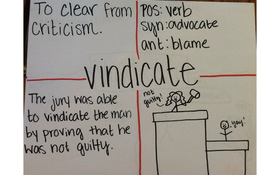 To clear from
criticism.
POS: verb
syn: advocate
ant: blame
vindicate
The jury was able
to vindicate the man
by proving that he
was not guilty.
not
guilty!
yay!